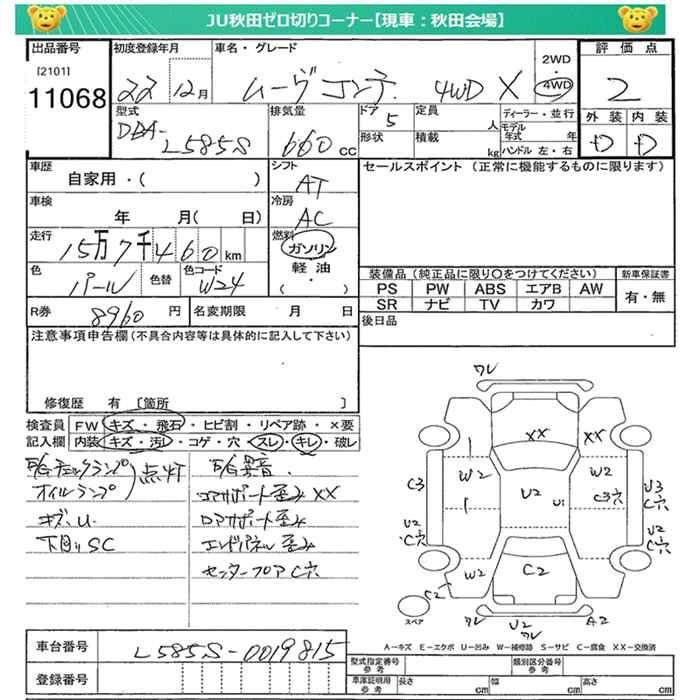 JU秋田ゼロ切りコーナー【現車：秋田会場】
出品番号 初度登録年月 車名・グレード 2WD 4WD 評価点
[2101]
11068 22 12月 ムーヴコンテ 4WD X 2
型式 排気量 ドア 定員 人 ディーラー・並行 外装 内装
DBA-L585S 660cc 5 モデル年式 年 D D
形状 積載 kg ハンドル 左・右
車歴 シフト セールスポイント (正常に機能するものに限ります)
自家用・( ) AT
車検 冷房
年 月( 日) AC
走行 燃料
15万7千460km ガソリン・軽油・( )
色 色替 色コード 装備品(純正品に限り○をつけてください) 新車保証書
パール W24 PS PW ABS エアB AW 有・無
SR ナビ TV カワ
R券 8960円 名変期限 月 日 後日品
注意事項申告欄(不具合内容等は具体的に記入して下さい)
修復歴 有 [箇所 ]
検査員記入欄 FW キズ・飛石・ヒビ割・リペア跡・×要
内装 キズ・汚レ・コゲ・穴・スレ・キレ・破レ
チェックランプ 点灯
オイルランプ
キズ、U.
下回りSC
コアサポート歪みXX
ロアサポート歪み
エンドパネル歪み
センターフロアC穴
ワレ
XX XX
W2 W2
C3 U2 U1 C3穴 U3 C穴
U2 C穴 U2 C穴
W2 C2
C2
スペア ワレ U2 ワレ A2
A－キズ E－エクボ U－凹み W－補修跡 S－サビ C－腐食 XX－交換済
車台番号 L585S-0019815
登録番号
型式指定番号 参考 類別区分番号 参考
車庫証明用 参考 長さ cm 幅 cm 高さ cm